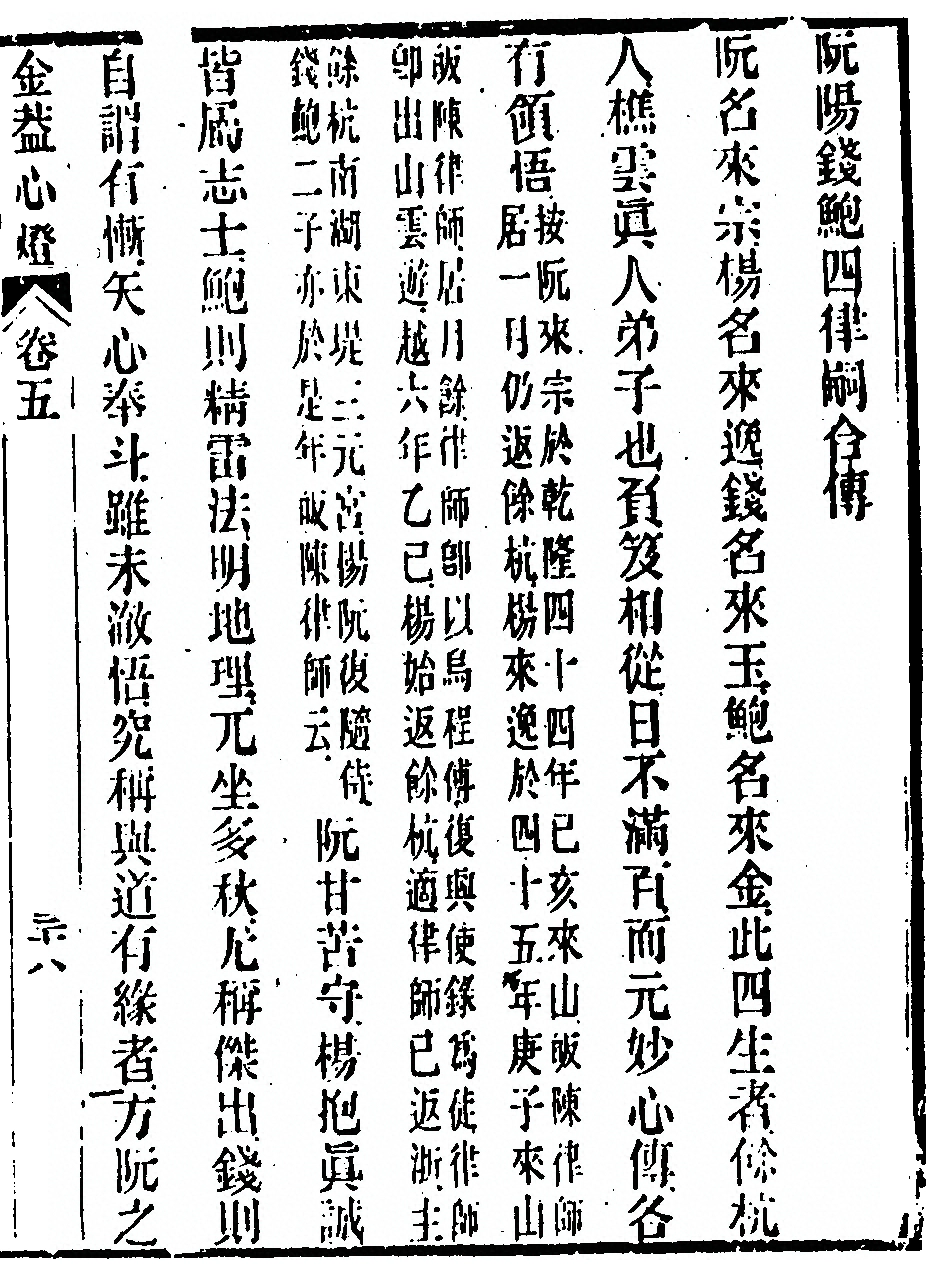 阮陽錢鮑四律嗣合傳
阮名來宗楊名來逸錢名來玉鮑名來金此四生者餘杭
人樵雲眞人弟子也負笈相從日不滿百而元妙心傳各
有領悟
按阮來宗於乾隆四十四年已亥來山皈陳律師
居一月仍返餘杭楊來逸於四十五年庚子來山
皈陳律師居月餘律師卽以烏程傅復興使錄爲徒律師
卽出山雲遊越六年乙已楊始返餘杭適律師已返浙主
餘杭南湖東堤三元宮楊阮復隨侍
錢鮑二子亦於是年皈陳律師云
阮甘苦守楊抱眞誠
皆屬志士鮑則精雷法明地理兀坐多秋尤稱傑出錢則
自謂有慚矢心奉斗雖未澈悟究稱與道有緣者方阮之
金蓋心燈
卷五
二十八